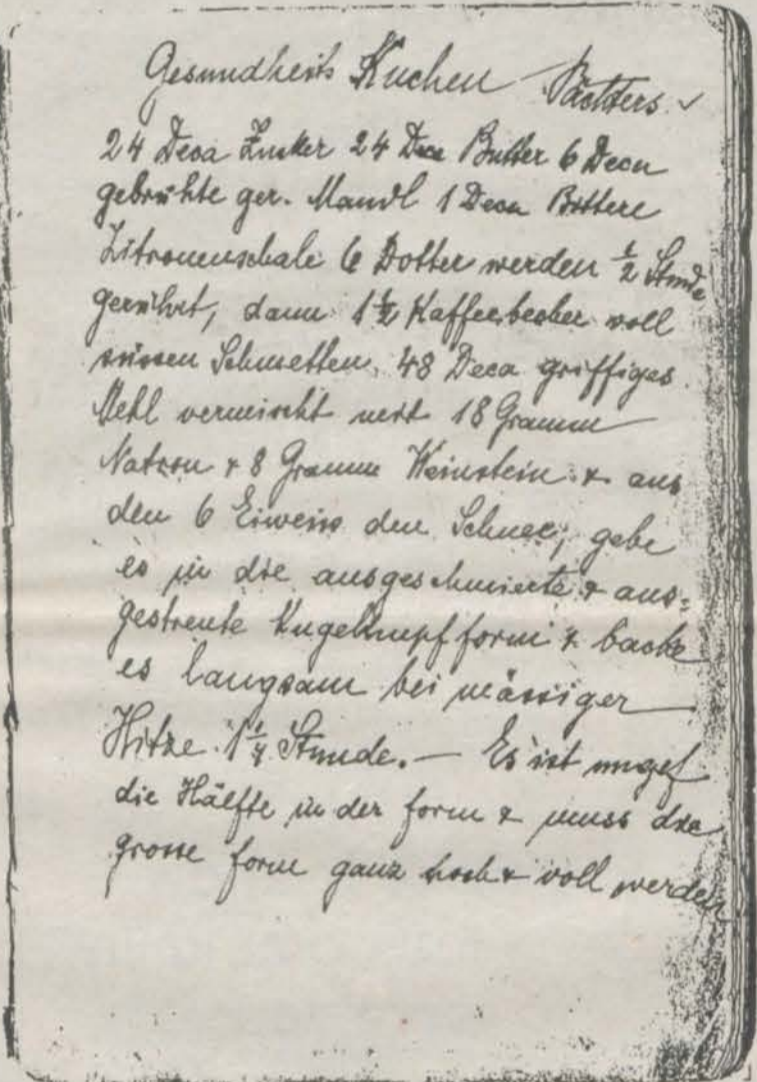 Gesundheits Kuchen Pächters
24 Deca Zucker 24 Deca Butter 6 Deca
gebrühte ger. Mandl 1 Deca Bittere
Zitronenschale 6 Dotter werden ½ Stunde
gerührt, dann 1½ Kaffeebecher voll
süssen Schmetten, 48 Deca griffiges
Mehl vermischt mit 18 Gramm
Natron & 8 Gramm Weinstein & aus
den 6 Eiweiss den Schnee, gebe
es in die ausgeschmierte & aus=
gestreute Kugelhupfform & backe
es langsam bei mässiger
Hitze 1¼ Stunde. — Es ist ungef
die Hälfte in der form & muss die
grosse form ganz hoch & voll werden